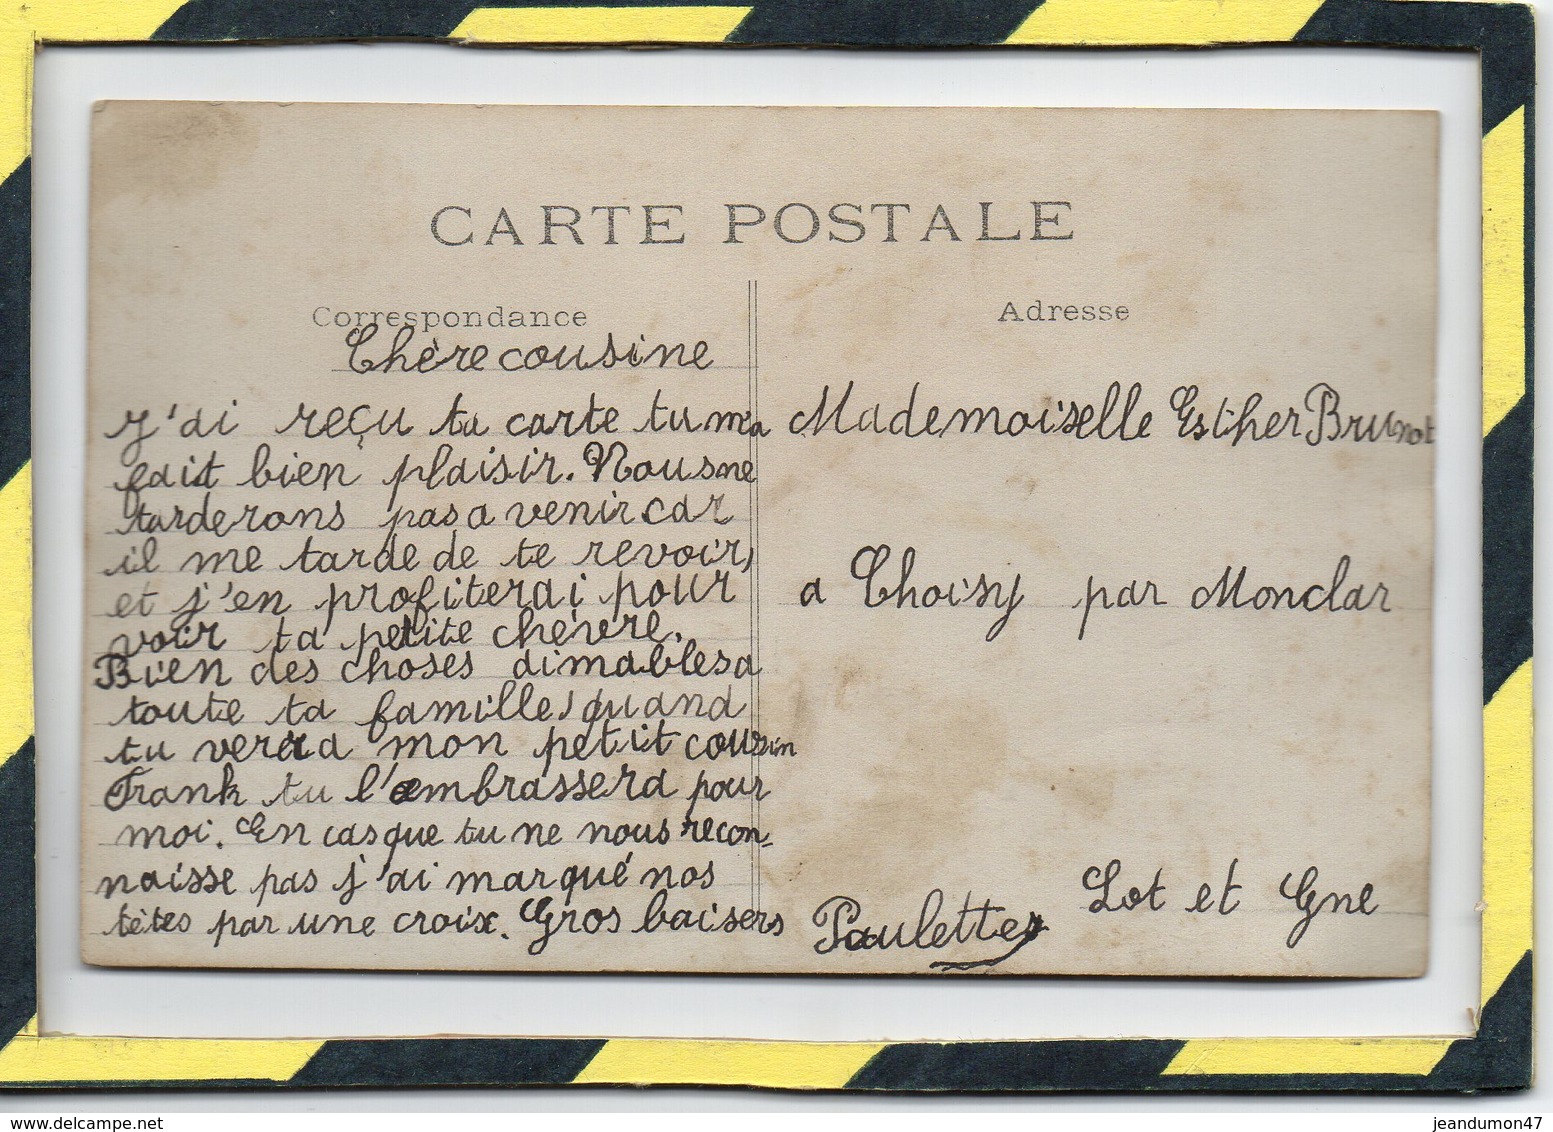 CARTE POSTALE
Correspondance
Chère cousine
J'ai reçu ta carte tu m'a
fait bien plaisir. Nous ne
tarderons pas a venir car
il me tarde de te revoir,
et j'en profiterai pour
voir ta petite chèvre.
Bien des choses aimables a
toute ta famille, quand
tu verra mon petit cousin
Frank tu l'embrassera pour
moi. En cas que tu ne nous recon-
naisse pas j'ai marqué nos
têtes par une croix. Gros baisers
Paulette
Adresse
Mademoiselle Esther Brunot
a Choisy par Monclar
Lot et Gne
www.delcampe.net
jeandumon47